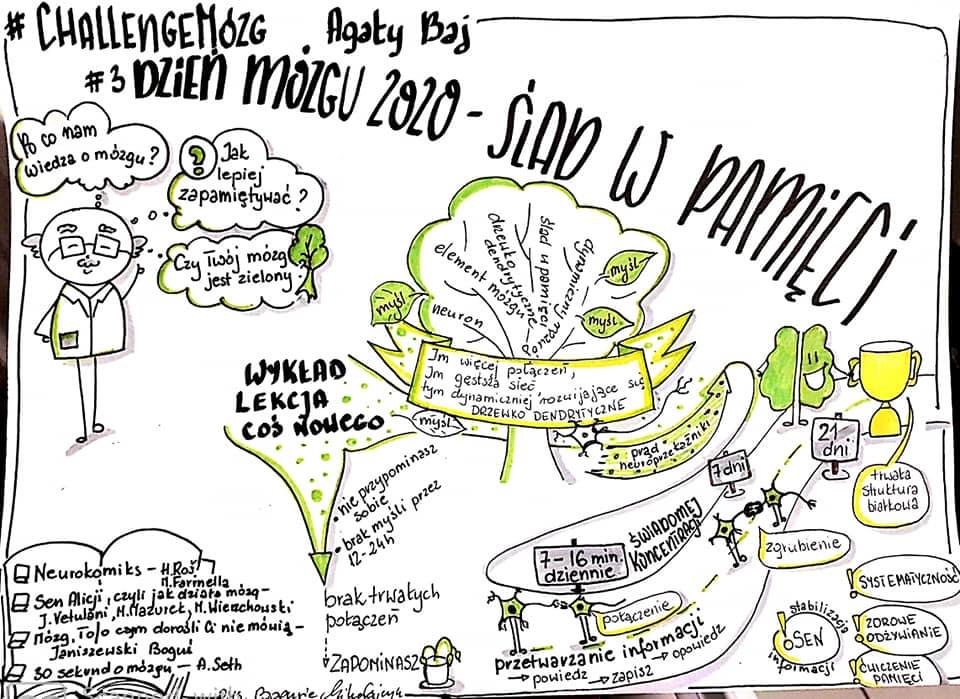 #CHALLENGEMÓZG Agaty Baj
#3 DZIEŃ MÓZGU 2020 - ŚLAD W PAMIĘCI
Po co nam
wiedza o mózgu?
? Jak
lepiej
zapamiętywać?
Czy Twój mózg
jest zielony
myśl
neuron
element mózgu
drzewko
dendrytyczne
ślad w pamięci
dynamiczny rozwój
myśl
myśl
Im więcej połączeń,
Im gęstsza sieć
tym dynamiczniej rozwijające się
DRZEWKO DENDRYTYCZNE
WYKŁAD
LEKCJA
COŚ NOWEGO
myśl
• nie przypominasz
sobie
• brak myśli przez
12-24h
brak trwałych
połączeń
ZAPOMINASZ
prąd
neuroprzekaźniki
7 dni
21
dni
trwała
struktura
białkowa
ŚWIADOMEJ
KONCENTRACJI
7-16 min.
dziennie
zgrubienie
połączenie
przetwarzanie informacji
→ powiedz → zapisz → opowiedz
stabilizacja
SEN
informacji
! SYSTEMATYCZNOŚĆ
! ZDROWE
ODŻYWIANIE
! ĆWICZENIE
PAMIĘCI
Neurokomiks - H. Roš
M. Farinella
Sen Alicji, czyli jak działa mózg -
J. Vetulani, M. Mazurek, M. Wierzchowski
Mózg. To, o czym dorośli Ci nie mówią -
Janiszewski Boguś
30 sekund o mózgu - A. Seth